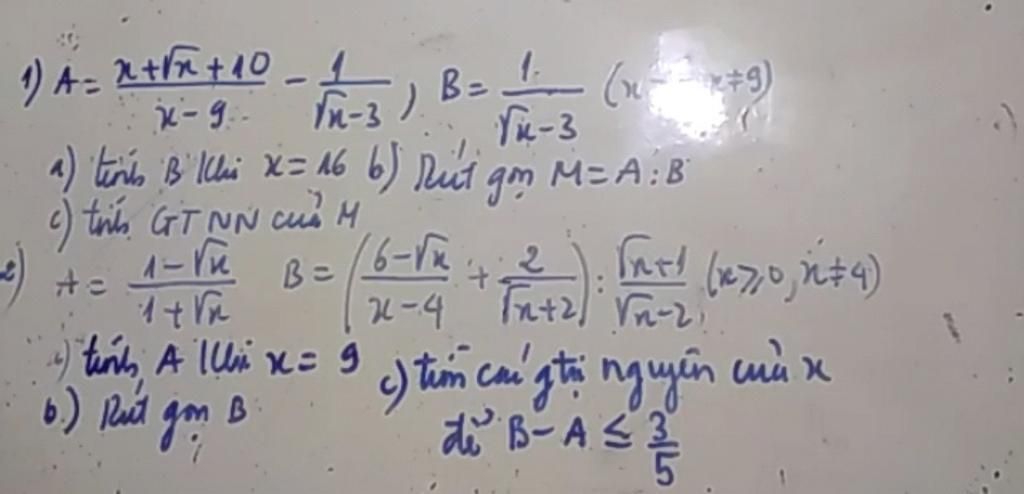 1) A = \frac{x+√x+10}{x-9} - \frac{1}{√x-3}, B = \frac{1}{√x-3} (x ≠ 9)
a) tính B khi x = 16 b) Rút gọn M = A : B
c) tính GTNN của M
2) A = \frac{1-√x}{1+√x} B = (\frac{6-√x}{x-4} + \frac{2}{√x+2}) : \frac{√x+1}{√x-2} (x ⩾ 0, x ≠ 4)
tính A khi x = 9 c) tìm các gtrị nguyên của x
b.) Rút gọn B để B - A ≤ \frac{3}{5}